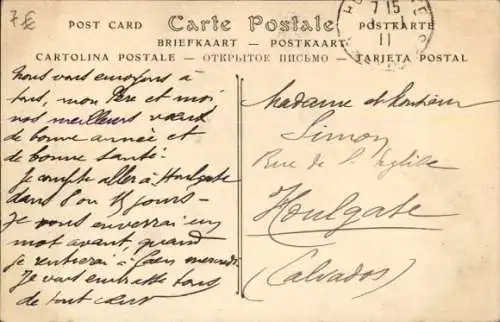 7€
POST CARD Carte Postale POSTKARTE
BRIEFKAART - POSTKAART
CARTOLINA POSTALE - ОТКРЫТОЕ ПИСЬМО - TARJETA POSTAL
7 15
11
Nous vous envoyons à
tous, mon Père et moi
nos meilleurs vœux
de bonne année et
de bonne santé.
Je compte aller à Houlgate
dans 8 ou 15 jours -
Je vous enverrai un
mot avant, quand
je rentrerai à Caen mercredi
Je vous embrasse tous
de tout cœur
Madame et Monsieur
Simon
Rue de l'Eglise
Houlgate
(Calvados)